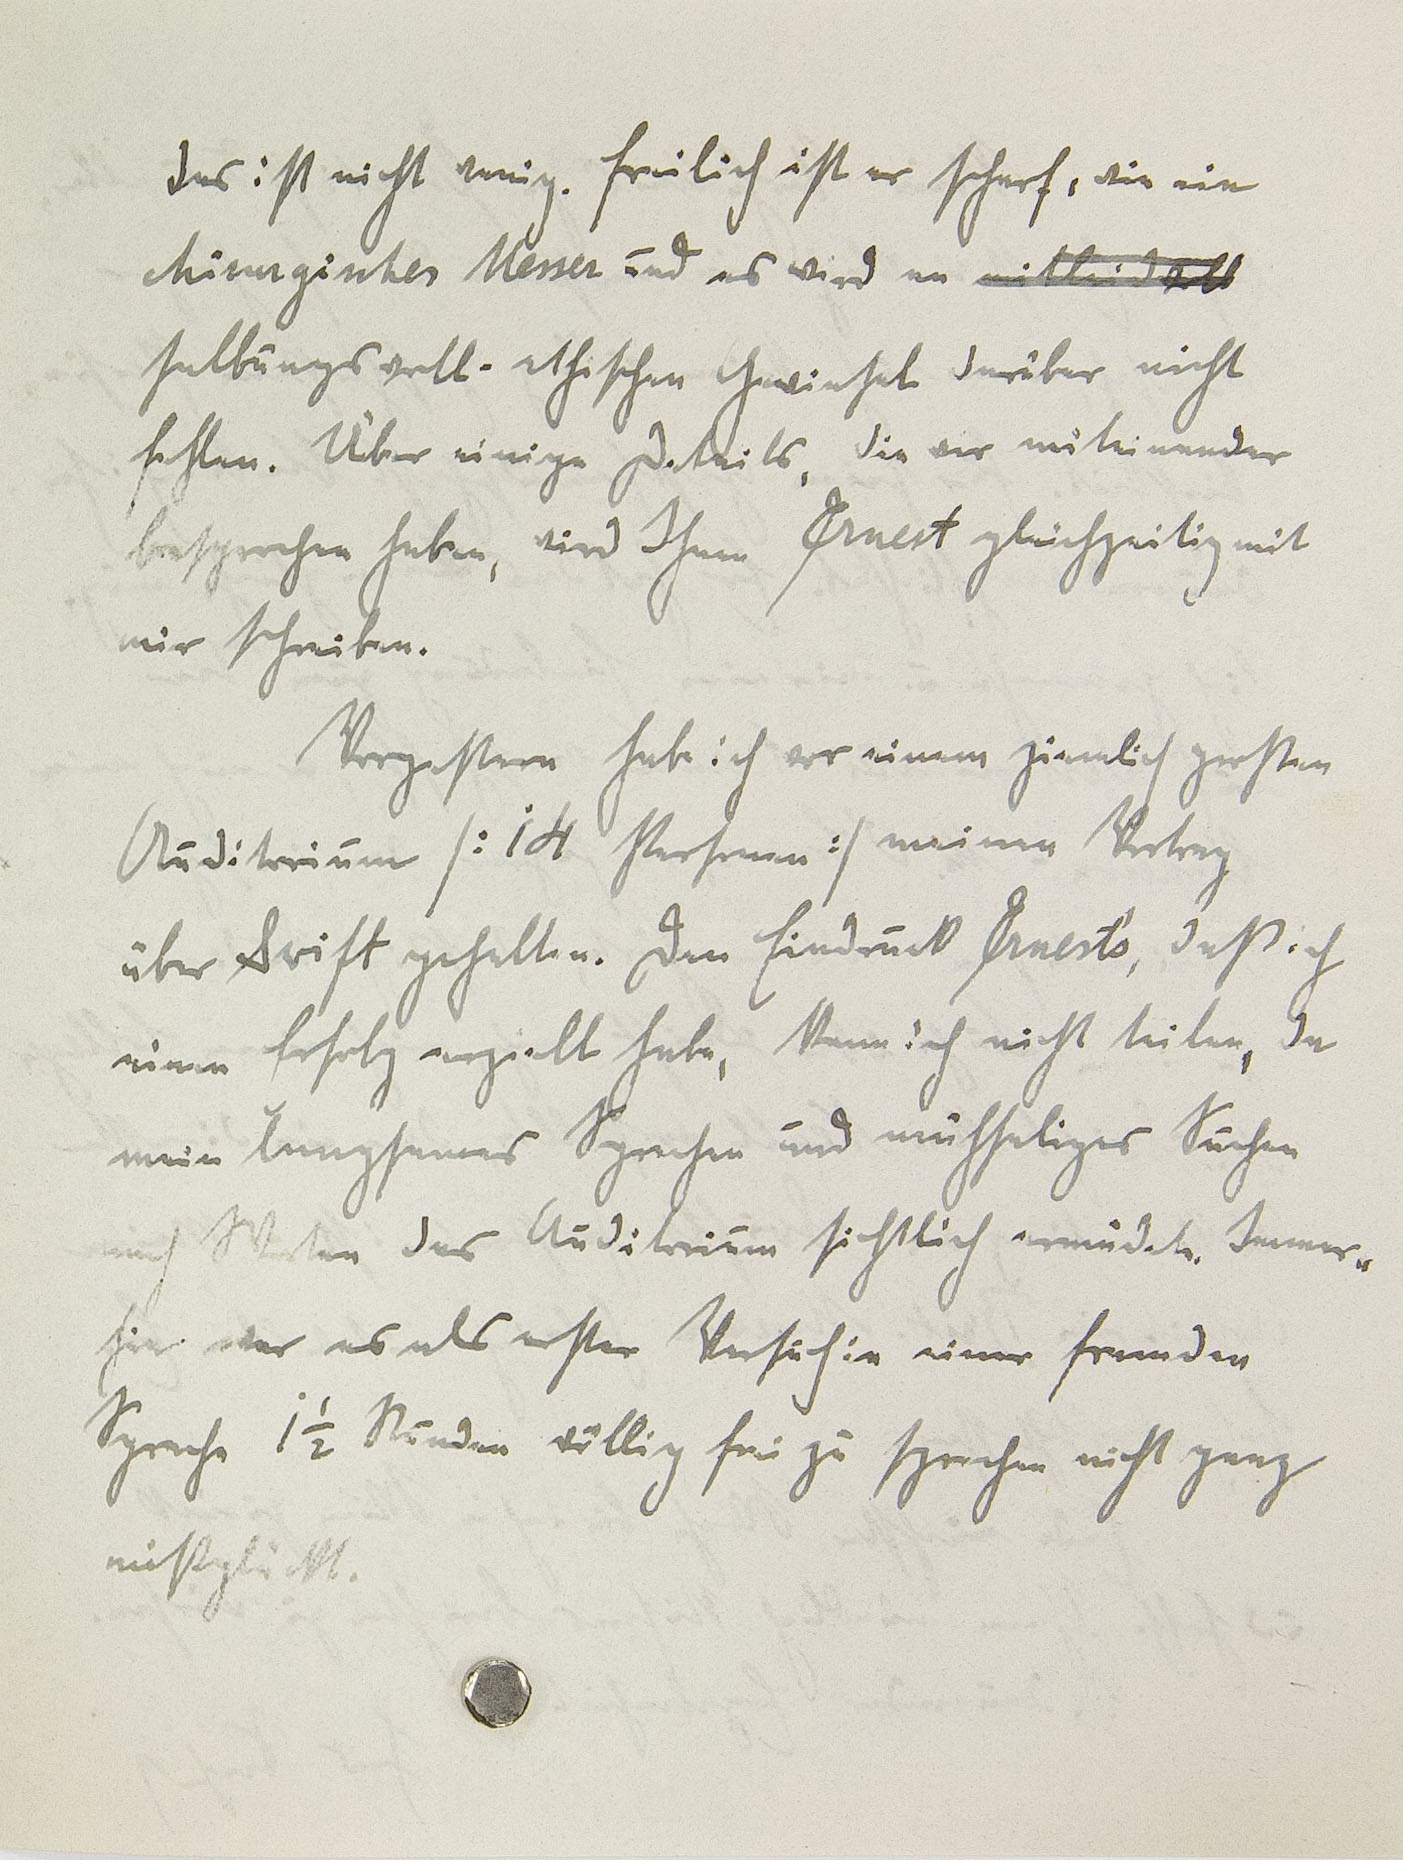 das ist nicht wenig. Freilich ist er scharf, wie ein
chirurgisches Messer und es wird an mitleidvoll
salbungsvoll-ethischen Gewinsel darüber nicht
fehlen. Über einige Details, die wir miteinander
besprochen haben, wird Ihnen Ernest gleichzeitig mit
mir schreiben.
Vorgestern habe ich vor einem ziemlich großen
Auditorium /: 14 Personen :/ meinen Vortrag
über Swift gehalten. Den Eindruck Ernest's, daß ich
einen Erfolg erzielt habe, kann ich nicht teilen, da
mein langsames Sprechen und mühseliges Suchen
nach Worten das Auditorium sichtlich ermüdete. Immer„
hin war es als erster Versuch in einer fremden
Sprache 1½ Stunden völlig frei zu sprechen nicht ganz
mißglückt.